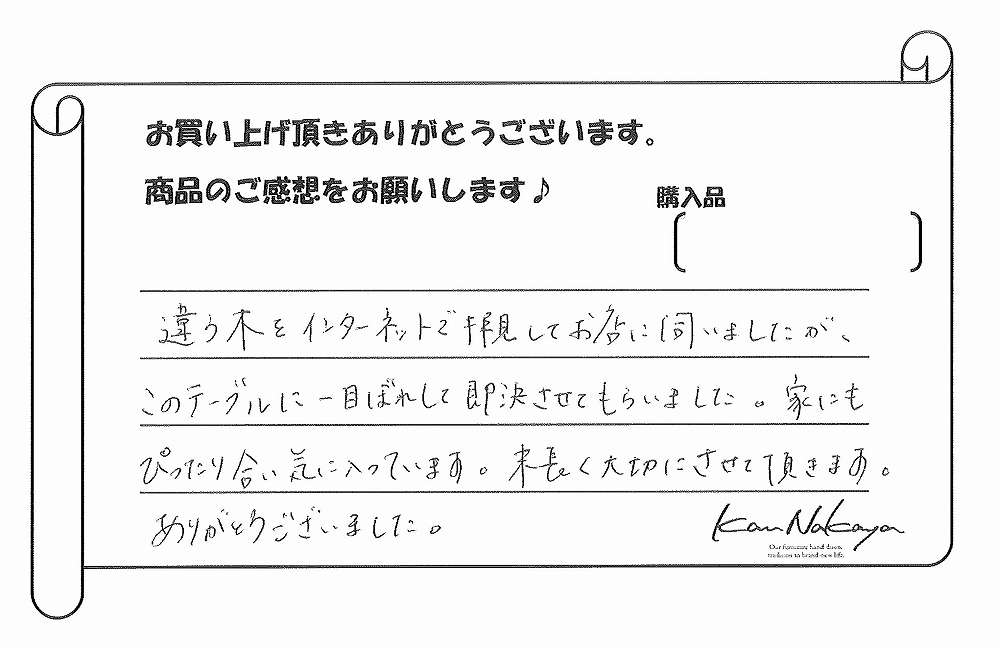 お買い上げ頂きありがとうございます。
商品のご感想をお願いします♪
購入品
違う木をインターネットで拝見してお店に伺いましたが、
このテーブルに一目ぼれして即決させてもらいました。家にも
ぴったり合い気に入っています。末長く大切にさせて頂きます。
ありがとうございました。
Kan Nakaya
Our furniture hand down
tradition to brand-new life.